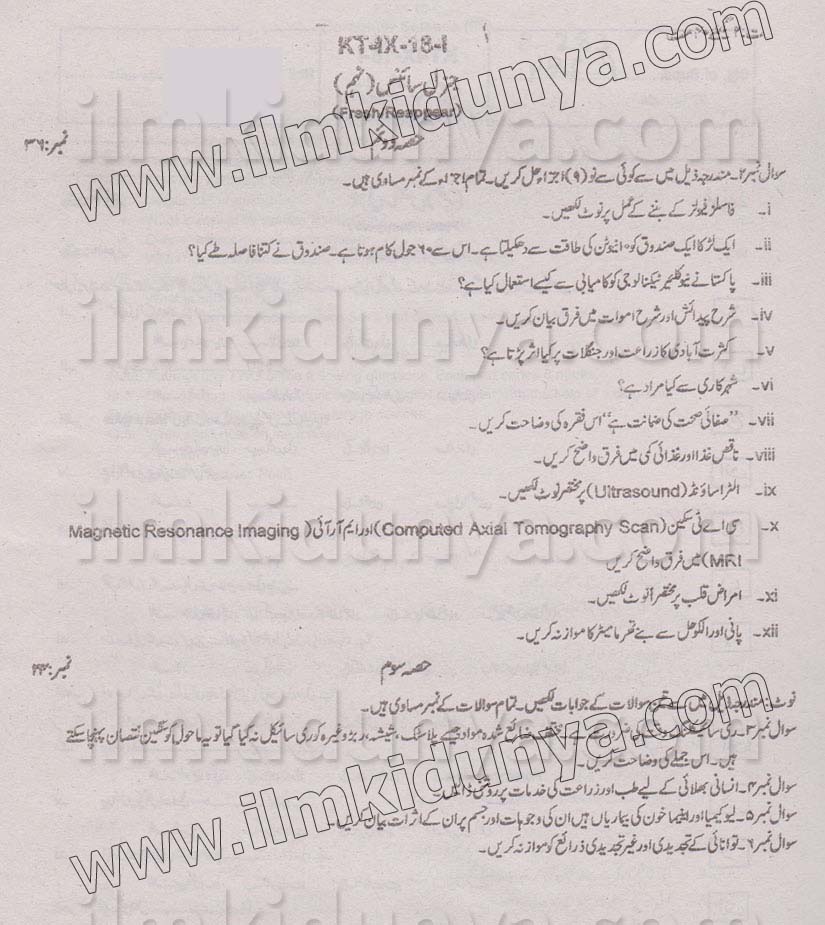 KT-IX-18-I
جنرل سائنس (نہم)
(Fresh/Reappear)
حصہ دوم
نمبر:۳۶
سوال نمبر۲۔ مندرجہ ذیل میں سے کوئی سے نو (۹) اجزاء حل کریں۔ تمام اجزاء کے نمبر مساوی ہیں۔
i۔ فاسلز فیولز کے بننے کے عمل پر نوٹ لکھیں۔
ii۔ ایک لڑکا ایک صندوق کو ۱۰ نیوٹن کی طاقت سے دھکیلتا ہے۔ اس سے ۶۰ جول کام ہوتا ہے۔ صندوق نے کتنا فاصلہ طے کیا؟
iii۔ پاکستان نے نیوکلئیر ٹیکنالوجی کو کامیابی سے کیسے استعمال کیا ہے؟
iv۔ شرح پیدائش اور شرح اموات میں فرق بیان کریں۔
v۔ کثرت آبادی کا زراعت اور جنگلات پر کیا اثر پڑتا ہے؟
vi۔ شہر کاری سے کیا مراد ہے؟
vii۔ "صفائی صحت کی ضمانت ہے" اس فقرہ کی وضاحت کریں۔
viii۔ ناقص غذا اور غذائی کمی میں فرق واضح کریں۔
ix۔ الٹرا ساؤنڈ (Ultrasound) پر مختصر نوٹ لکھیں۔
x۔ سی اے ٹی سکین (Computed Axial Tomography Scan) اور ایم آر آئی (Magnetic Resonance Imaging
MRI) میں فرق واضح کریں
xi۔ امراض قلب پر مختصراً نوٹ لکھیں۔
xii۔ پانی اور الکوحل سے بنے تھرمامیٹر کا موازنہ کریں۔
حصہ سوم
نمبر:۲۴
نوٹ: مندرجہ ذیل میں سے تین سوالات کے جوابات لکھیں۔ تمام سوالات کے نمبر مساوی ہیں۔
سوال نمبر۳۔ ری سائیکلنگ وقت کی ضرورت ہے۔ ضائع شدہ مواد جیسے پلاسٹک، شیشہ، ربڑ وغیرہ کو ری سائیکل نہ کیا گیا تو یہ ماحول کو سنگین نقصان پہنچا سکتے
ہیں۔ اس جملے کی وضاحت کریں۔
سوال نمبر۴۔ انسانی بھلائی کے لیے طب اور زراعت کی خدمات پر روشنی ڈالیں۔
سوال نمبر۵۔ لیوکیمیا اور اینیمیا خون کی بیماریاں ہیں ان کی وجوہات اور جسم پر ان کے اثرات بیان کریں۔
سوال نمبر۶۔ توانائی کے تجدیدی اور غیر تجدیدی ذرائع کو موازنہ کریں۔
www.ilmkidunya.com
ilmkidunya.com
ilmkidunya.com
ilmkidunya.com
www.ilmkidunya.com
ilmkidunya.com